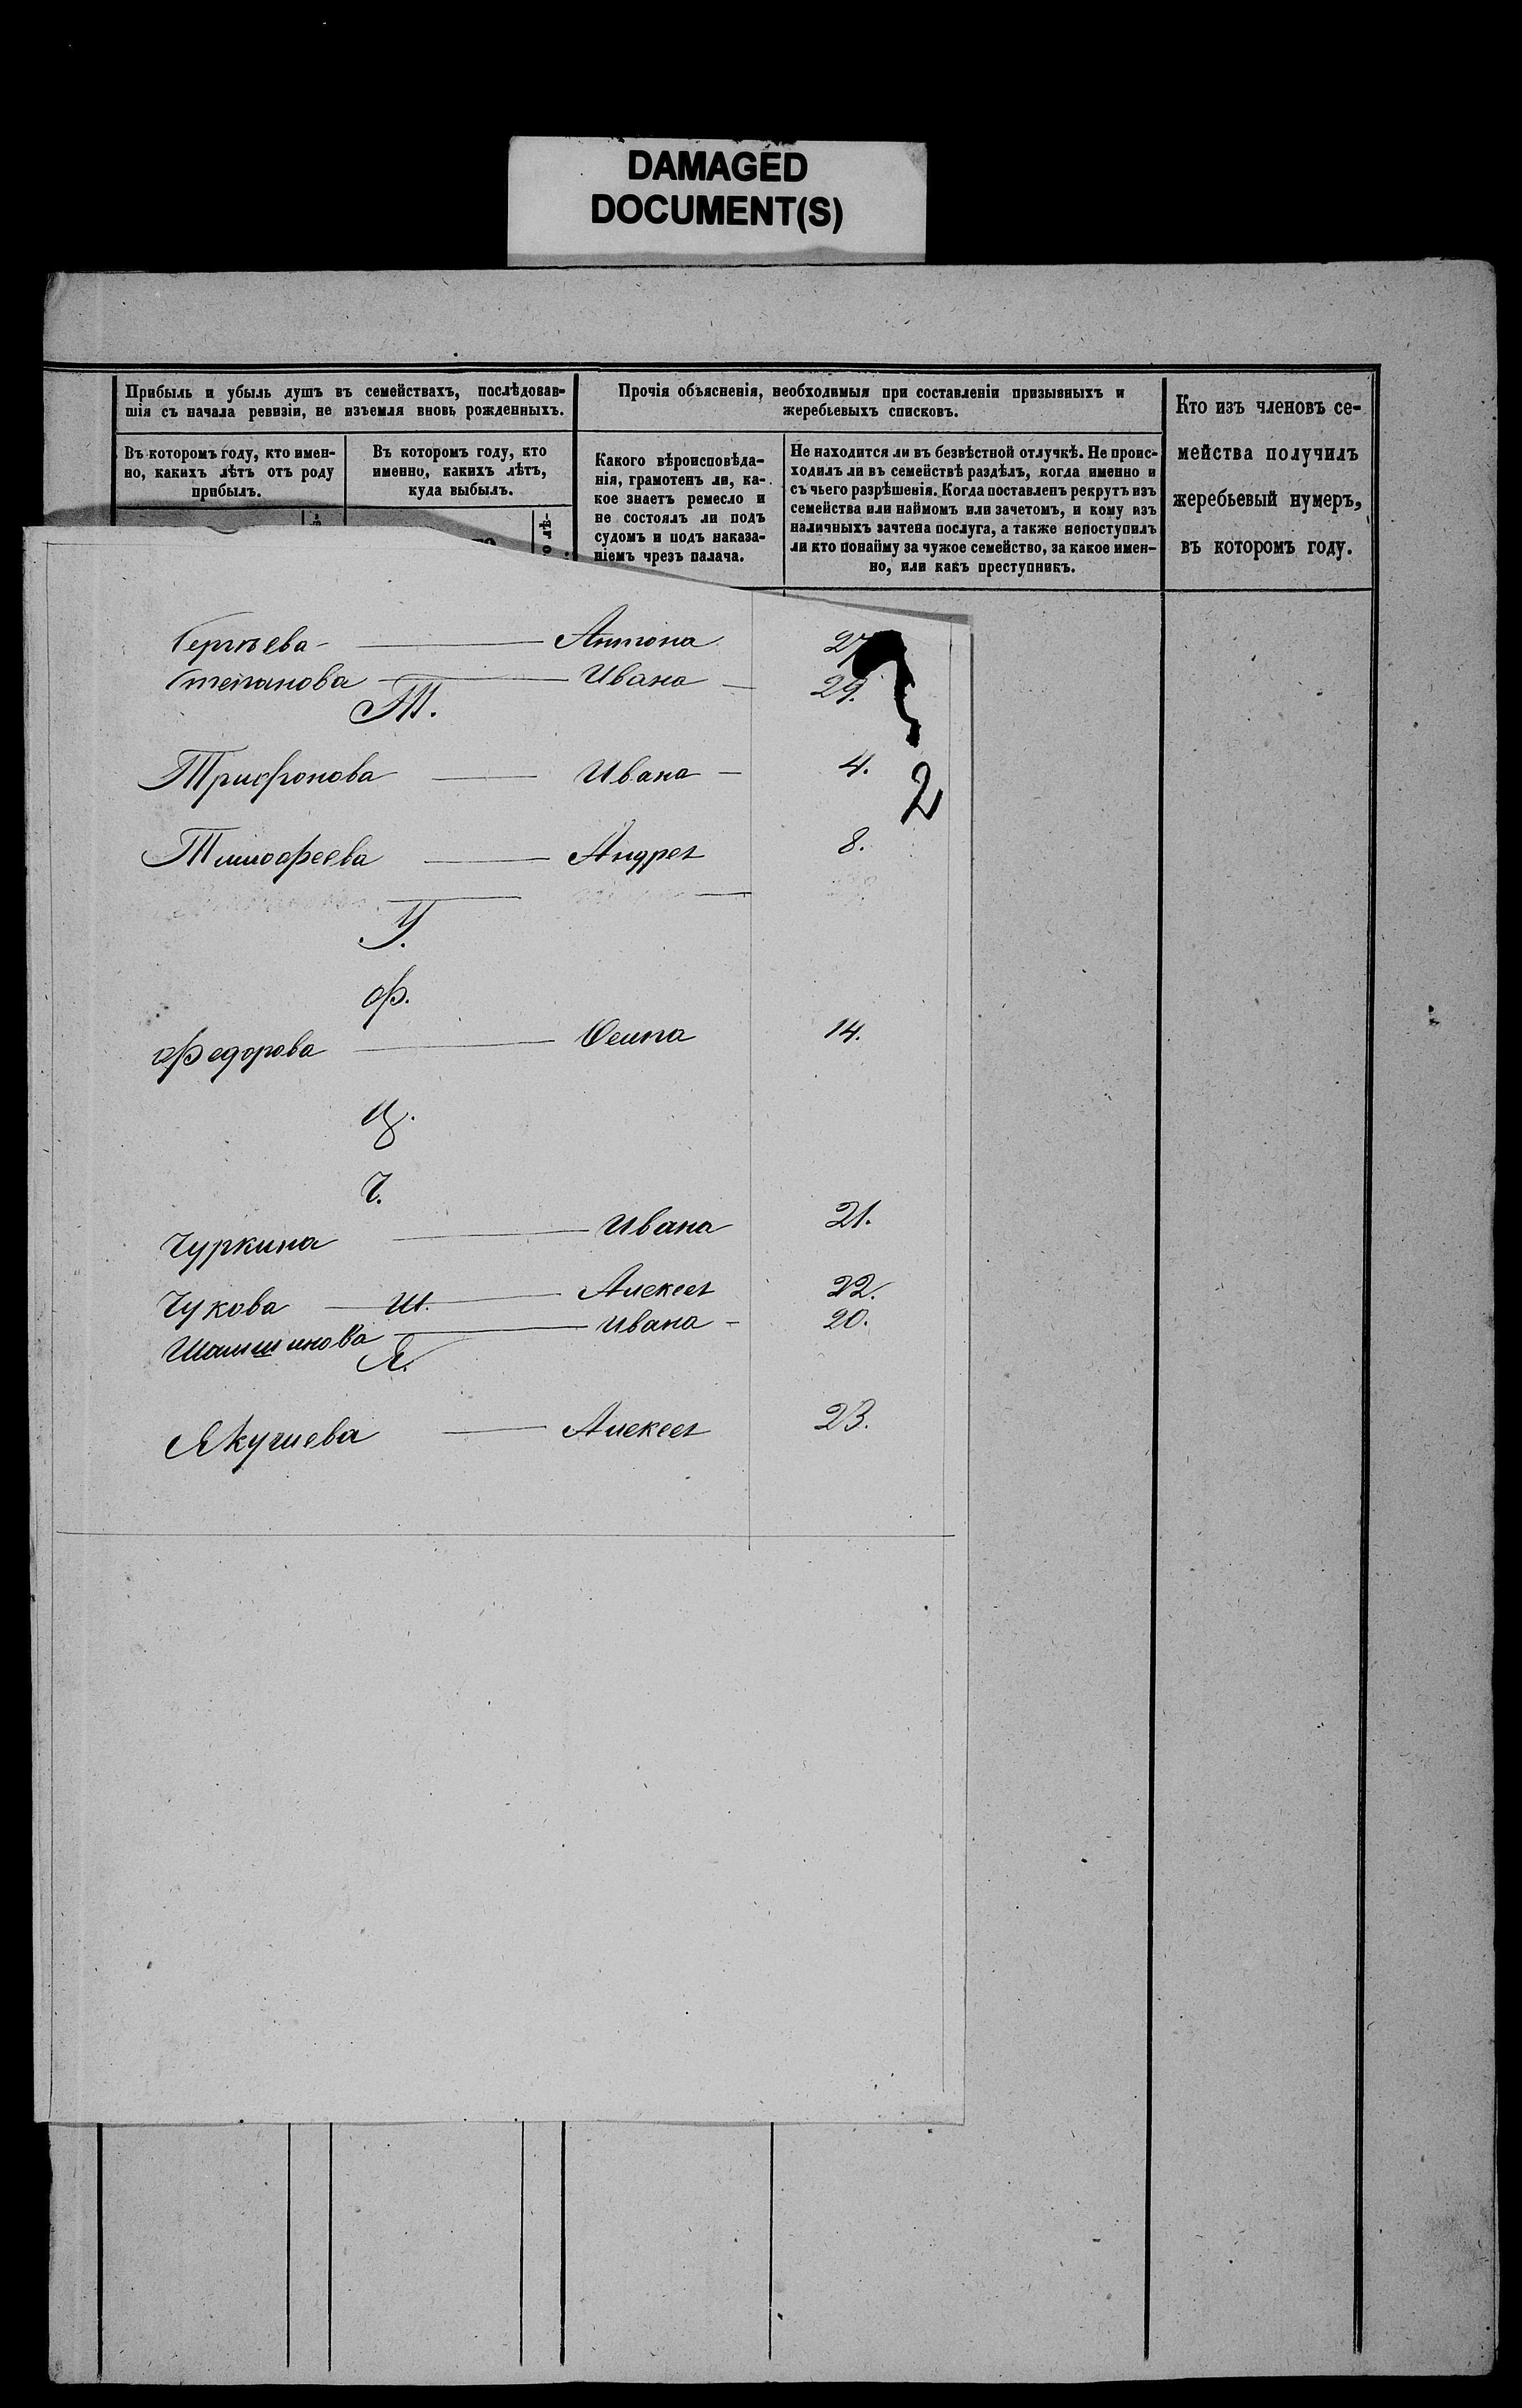 DAMAGED
DOCUMENT(S)
Прибыль и убыль душъ въ семействахъ, послѣдовав-
шія съ начала ревизіи, не изъемля вновь рожденныхъ.
Въ которомъ году, кто имен-
но, какихъ лѣтъ отъ роду
прибылъ.
Въ которомъ году, кто
именно, какихъ лѣтъ,
куда выбылъ.
Прочія объясненія, необходимыя при составленіи призывныхъ и
жеребьевыхъ списковъ.
Какого вѣроисповѣда-
нія, грамотенъ ли, ка-
кое знаетъ ремесло и
не состоялъ ли подъ
судомъ и подъ наказа-
ніемъ чрезъ палача.
Не находится ли въ безвѣстной отлучкѣ. Не проис-
ходилъ ли въ семействѣ раздѣлъ, когда именно и
съ чьего разрѣшенія. Когда поставленъ рекрутъ изъ
семейства или наймомъ или зачетомъ, и кому изъ
наличныхъ зачтена послуга, а также непоступилъ
ли кто понайму за чужое семейство, за какое имен-
но, или какъ преступникъ.
Кто изъ членовъ се-
мейства получилъ
жеребьевый нумеръ,
въ которомъ году.
Сергѣева — Антона 27
Степанова — Ивана — 29.
Т.
Трифонова — Ивана — 4.
2
Тимофеева — Андрея 8.
У.
Ф.
Федорова — Осипа 14.
Ц.
Ч.
Чуркина — Ивана 21.
Чукова — Алексея 22.
Ш.
Ивана — 20.
Я.
Алексея 23.